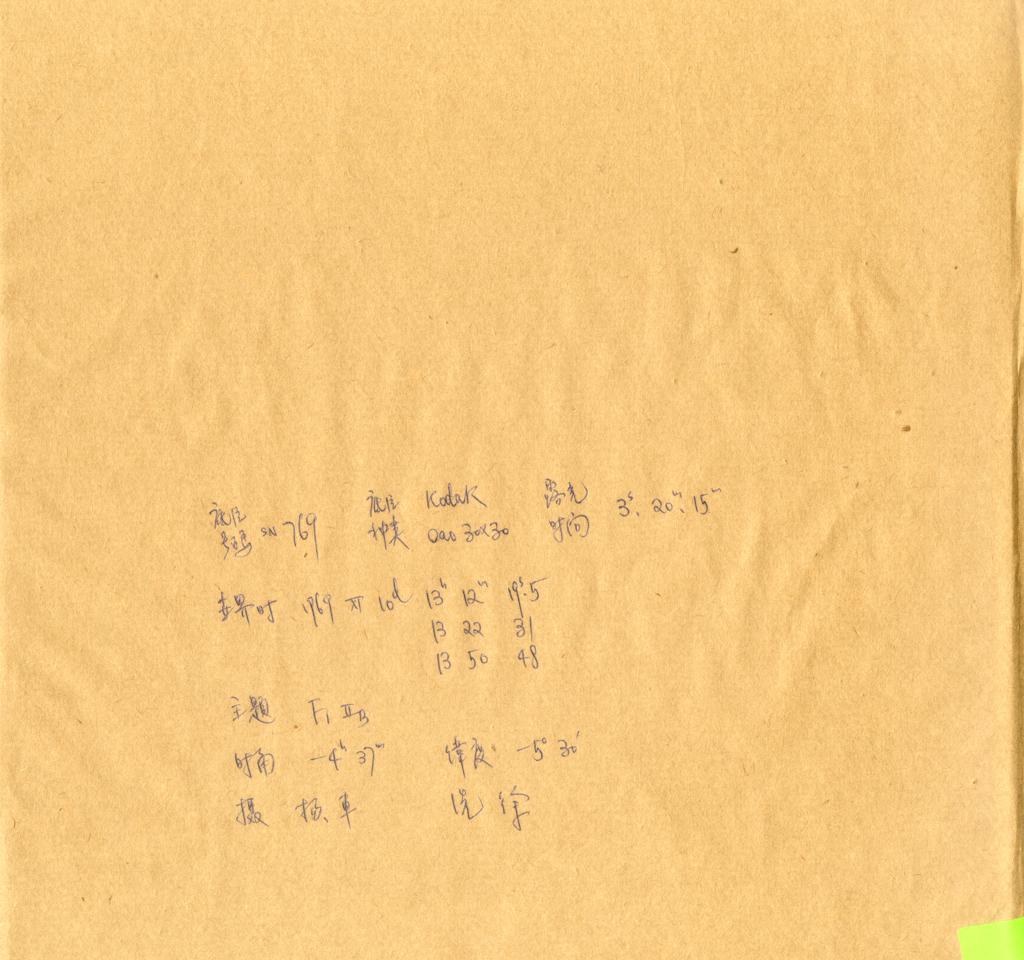 底片号码 SN769 底片种类 Kodak 0a0 30×30 露光时间 3ˢ, 20ᵐ, 15ᵐ
世界时 1969 XI 10ᵈ 13ʰ 12ᵐ 19ˢ.5
13 22 31
13 50 48
主题 F1 IIB
时角 -4ʰ 37ᵐ 纬度 -5° 30′
摄 杨、車 洗 徐